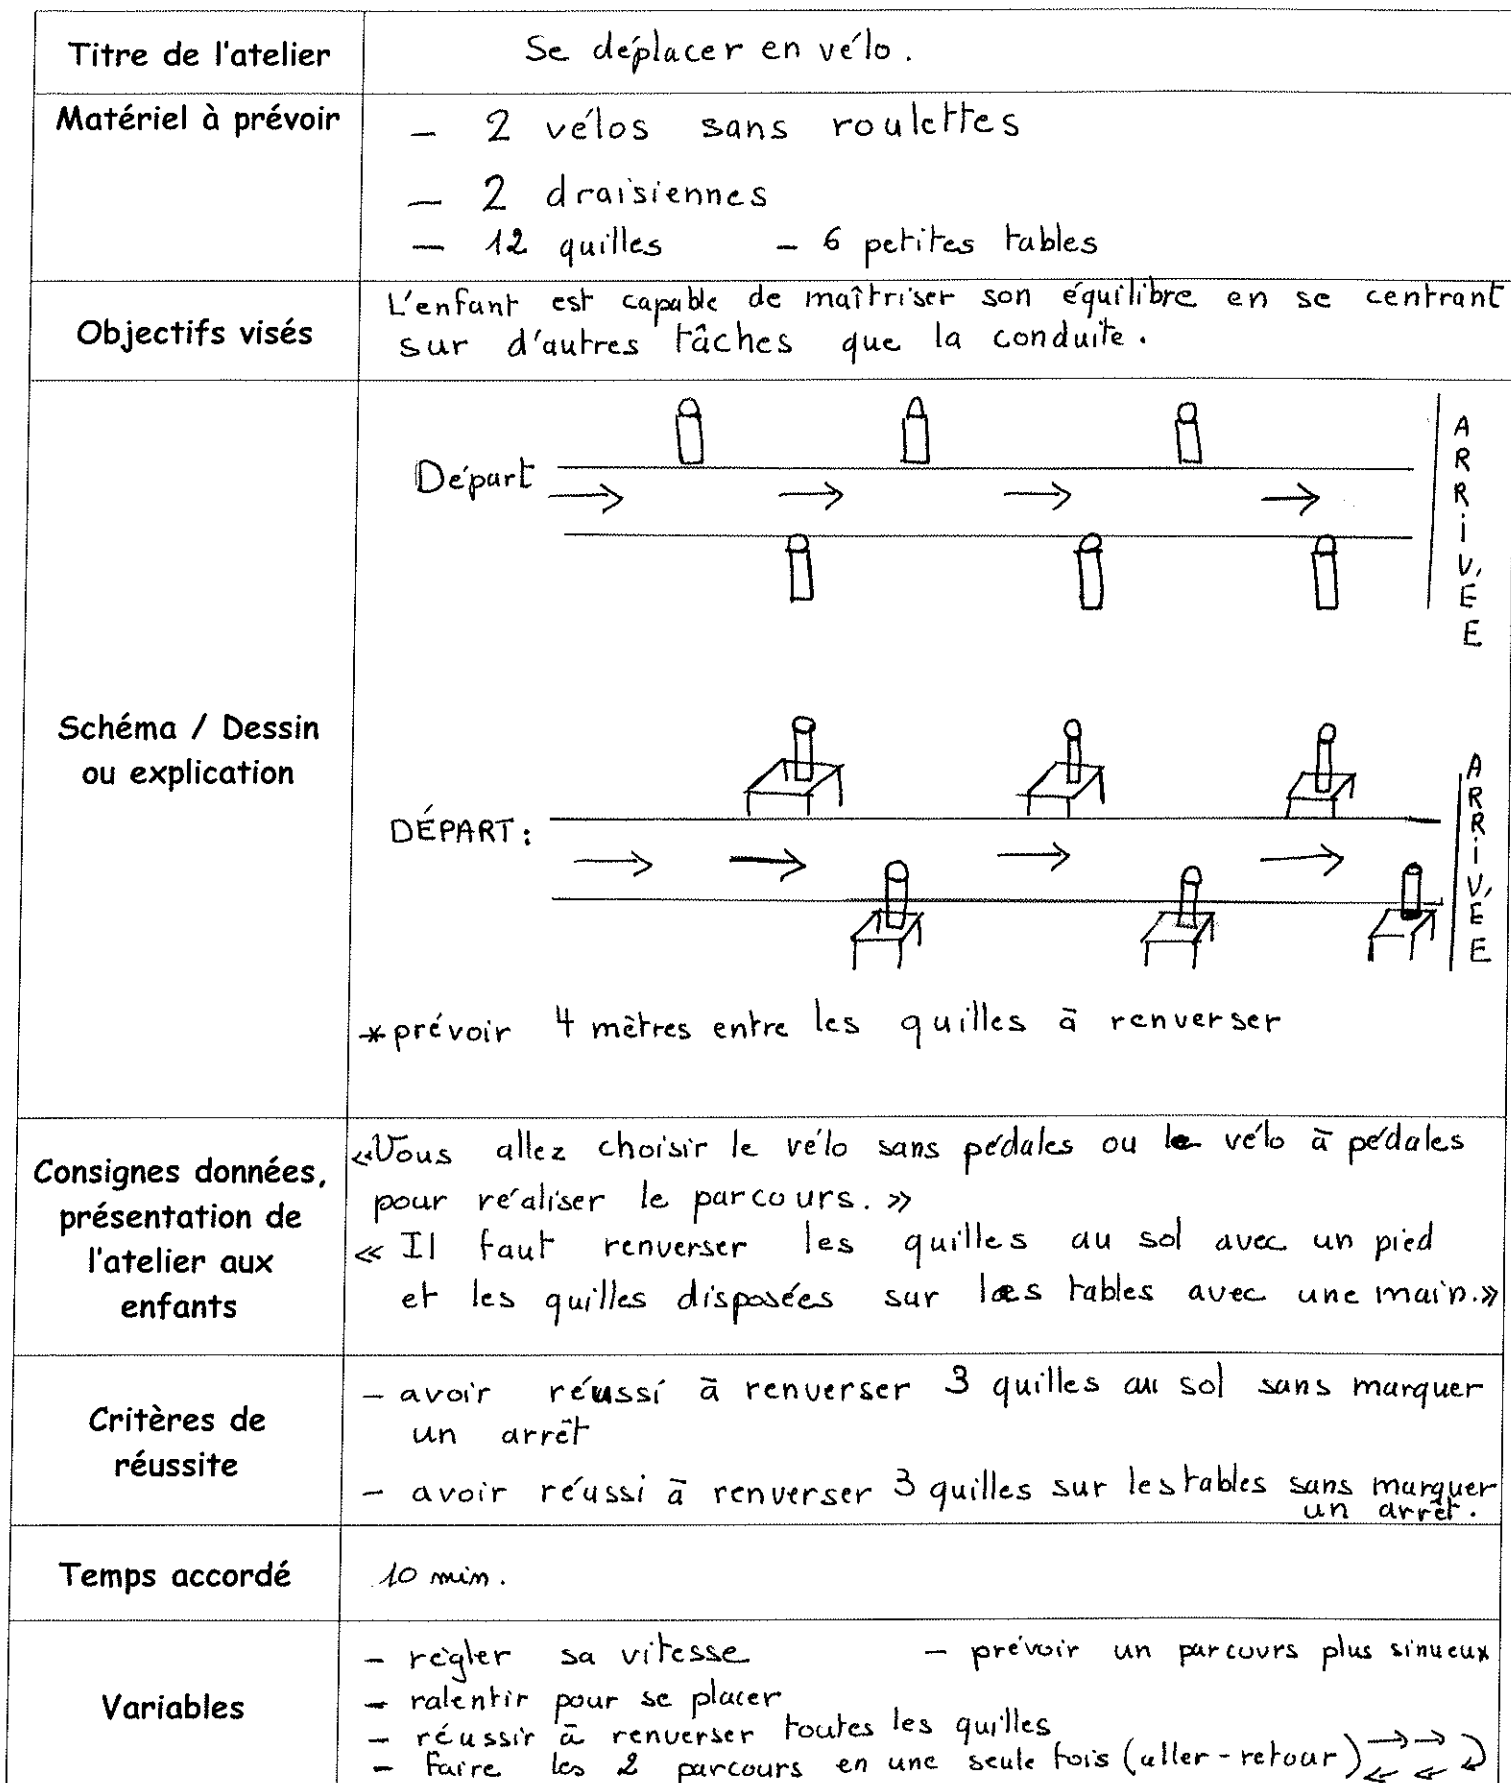 Titre de l'atelier
Se déplacer en vélo.
Matériel à prévoir
- 2 vélos sans roulettes
- 2 draisiennes
- 12 quilles - 6 petites tables
Objectifs visés
L'enfant est capable de maîtriser son équilibre en se centrant
sur d'autres tâches que la conduite.
Schéma / Dessin
ou explication
Départ
ARRIVÉE
DÉPART :
ARRIVÉE
* prévoir 4 mètres entre les quilles à renverser
Consignes données,
présentation de
l'atelier aux
enfants
«Vous allez choisir le vélo sans pédales ou le vélo à pédales
pour réaliser le parcours.»
« Il faut renverser les quilles au sol avec un pied
et les quilles disposées sur les tables avec une main.»
Critères de
réussite
- avoir réussi à renverser 3 quilles au sol sans marquer
un arrêt
- avoir réussi à renverser 3 quilles sur les tables sans marquer
un arrêt.
Temps accordé
10 min.
Variables
- règler sa vitesse - prévoir un parcours plus sinueux
- ralentir pour se placer
- réussir à renverser toutes les quilles
- faire les 2 parcours en une seule fois (aller-retour)